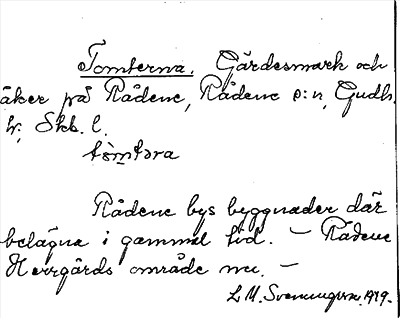 Tomterna. Gärdesmark och
åker på Rådene, Rådene s:n, Gudh.
h; Skb. l.
tòmtəra
Rådene bys byggnader där
belägna i gammal tid. — Rådene
Herrgårds område nu. —
L. M. Svenungsson. 1919.